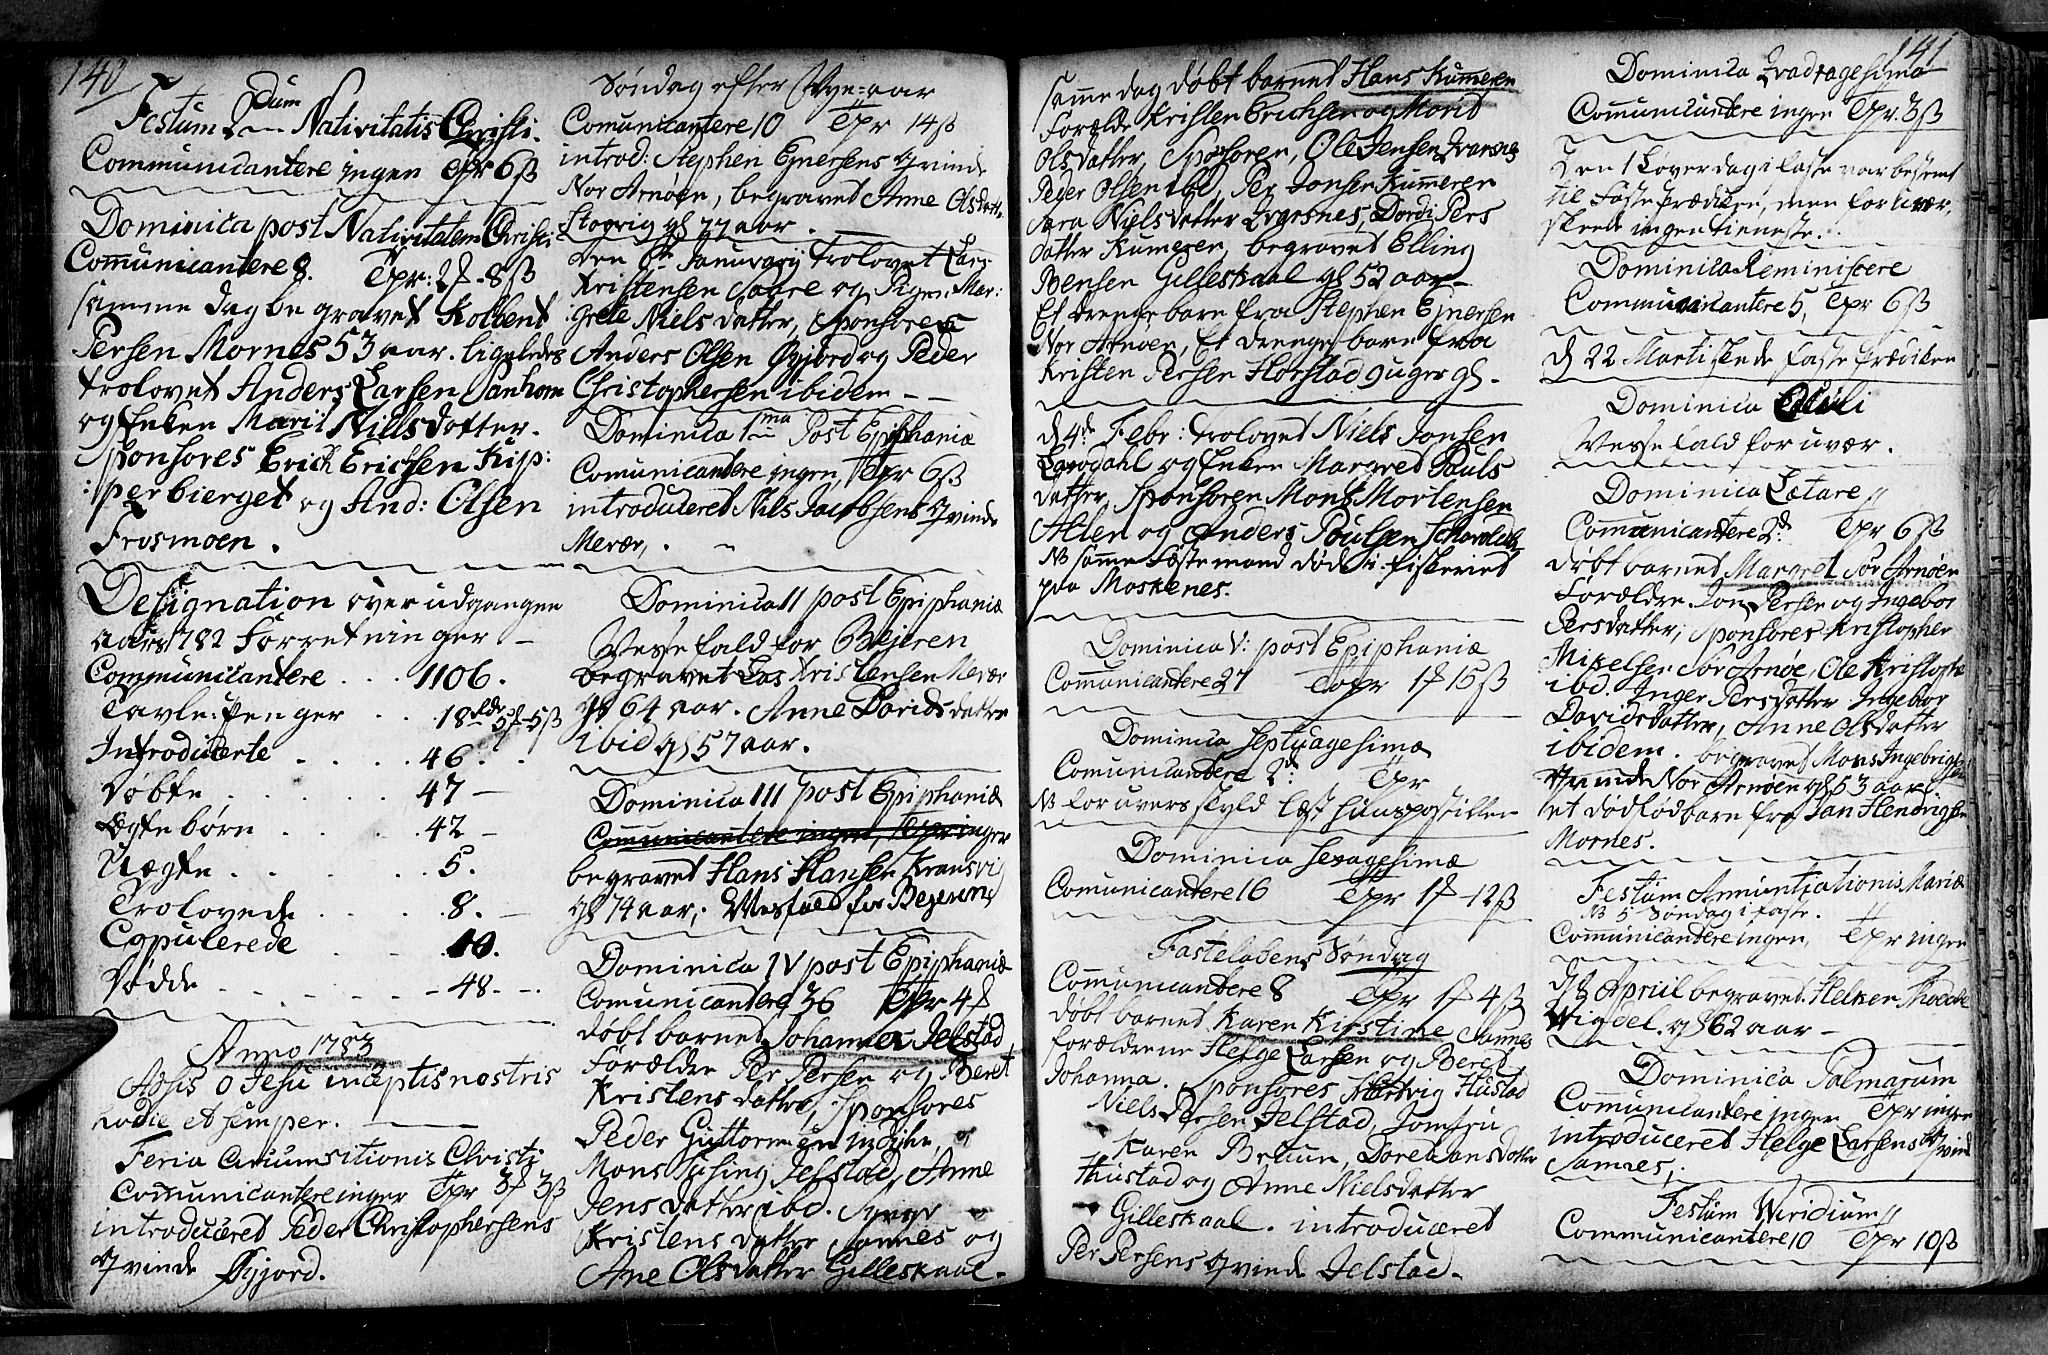 140
Festum 2dum Nativitatis Christi.
Communicantere ingen Tpr 6ß
Dominica post Nativitatem Christi
Communicantere 8. Tpr: 2f - 8ß
samme dag begravet Kolbent
Persen Mornes 53 aar. ligeledes
trolovet Anders Larsen Sanhorn
og Enken Marit Nillsdotter.
sponsores Erich Erichsen Kip:
:perbierget og And: Olsen
Frosmoen.
Designation over udgangen
aars 1782 Forretninger -
Communicantere . . . 1106.
Tavle: Penger . . 18 rdr 5f - 5ß
Introducerte . . . . 46.
Døbte . . . . . . 47 -
Ægtebørn . . . . . 42 -
Uægte . . . . . . 5.
Trolovede . . . . 8. -
Copulerede . . . . 10.
Dødde - - - - - - 48 - -
Anno 1783
Adsis o Jesu inceptis nostris
hodie et semper.
Feria Circumsitionis Christi
Communicantere ingen Tpr 3f 3ß
introduceret Peder Christophersens
Qvinde Øyjord.
Søndag efter Nye-aar
Comunicantere 10 Tpr 14ß
introd: Stephen Ejnersens Qvinde
Nor Arnøen, begravet Anne Olsdatt.
Stogvig gl 77 aar.
Den 6te Januvarij trolovet Lars
Kristensen Saare og Pigen Mar:
:grete Nielsdatter, Sponsores
Anders Olsen Øyjord og Peder
Christophersen ibidem - -
Dominica 1ma Post Epiphaniæ
Comunicantere ingen, Tpr 6ß
introduceret Nils Jacobsens Qvinde
Merær,
Dominica II post Epiphaniæ
Messefald for Bejeren
begravet Lars Kristensen Merær
gl 64 aar. Anne Davidsdatter
ibid gl 57 aar.
Dominica III post Epiphaniæ
Comunicantere ingen, Tpr ingen
begravet Hans Hansen Kransvig
gl 74 aar, Messfald for Bejeren
Dominica IV post Epiphaniæ
Comunicantere 36 Tpr 4f
døbt barnet Johanna Jelstad
Forældre Per Persen og Beret
Kristensdatter, Sponsores
Peder Guttormsen Indyhr,
Mons Susing Jelstad, Anne
Jensdatter ibd.
Kristensdatter Sannes og
Ane Olsdatter Gilleskaal.
141
samme dag døbt barnet Hans Kummeren
Forældre Kristen Erichsen og Morit
Olsdatter, Sponsoren, Ole Jensen Ivarsnes
Peder Olsen ibd, Per Jonsen Kummeren
Sara Nielsdatter Ivarsnes, Dordi Pers
datter Kumeren, begravet Elling
Bensen Gilleskaal gl 52 aar
Et drengebarn fra Stephen Ejnersen
Nor Arnøen, Et drengebarn fra
Kristen Persen Horstad 9 uger gl.
d 4de Febr: trolovet Niels Jonsen
Lavgdahl og Enken Margret Pauls
datter, Sponsoren Mons Mortensen
Alten og Anders Poulsen
NB samme Fæstemand døde i fiskeriet
paa Moskenes.
Dominica V: post Epiphaniæ
Communicantere 27 Tpr 1f 15ß
Dominica Septuagesimæ
Comunicantere 2de: Tpr
NB for uvers skyld læst huuspostillen
Dominica Sexagesimæ
Comunicantere 16 Tpr 1f - 12ß
Fastelabens Søndag
Communicantere 8 Tpr 1f 4ß
døbt barnet Karen Kirstine Sannes
forældrene Helge Larsen og Beret
Johanna. Sponsores Hartvig Hustad
Niels Persen Jelstad, Jomfru
Karen Bruun, Dorehansdatter
Hustad og Anne Nielsdatter
Gilleskaal. introduceret
Per Persens Qvinde Jelstad.
Dominica Qvadragesima
Communicantere ingen Tpr. 3ß
Den 1 Løverdag i faste var bestemt
til Fasteprædiken, men for uvær,
skeede ingen tieneste.
Dominica Reminiscere
Communicantere 5, Tpr 6ß
d 22 Marti skeede faste prædiken
Dominica Oculi
Messefald for uvær.
Dominica Lætare
Communicantere 2de: Tpr 6ß
døbt barnet Margret Sør Arnøen
Forældre Jon Persen og Ingebor
Persdatter, Sponsores Kristopher
Mikelsen Sør Arnøe, Ole Kristophe
ibd. Inger Persdatter Ingebor
Davidsdatter, Anne Olsdatter
ibidem. begravet Mons Ingebrigtsens
Qvinde Nor Arnøen gl 53 aar
et dødfød barn fra Jan Hendrigsen
Mornes.
Festum Annuntiationis Mariæ
NB 5 Søndag i faste.
Communicantere ingen, Tpr ingen
d 8 April begravet Helken
Migdel. gl 62 aar -
Dominica Palmarum
Communicantere ingen Tpr ingen
introduceret Helge Larsens Qvind
Sannes,
Festum Viridium
Communicantere 10 Tpr 10ß